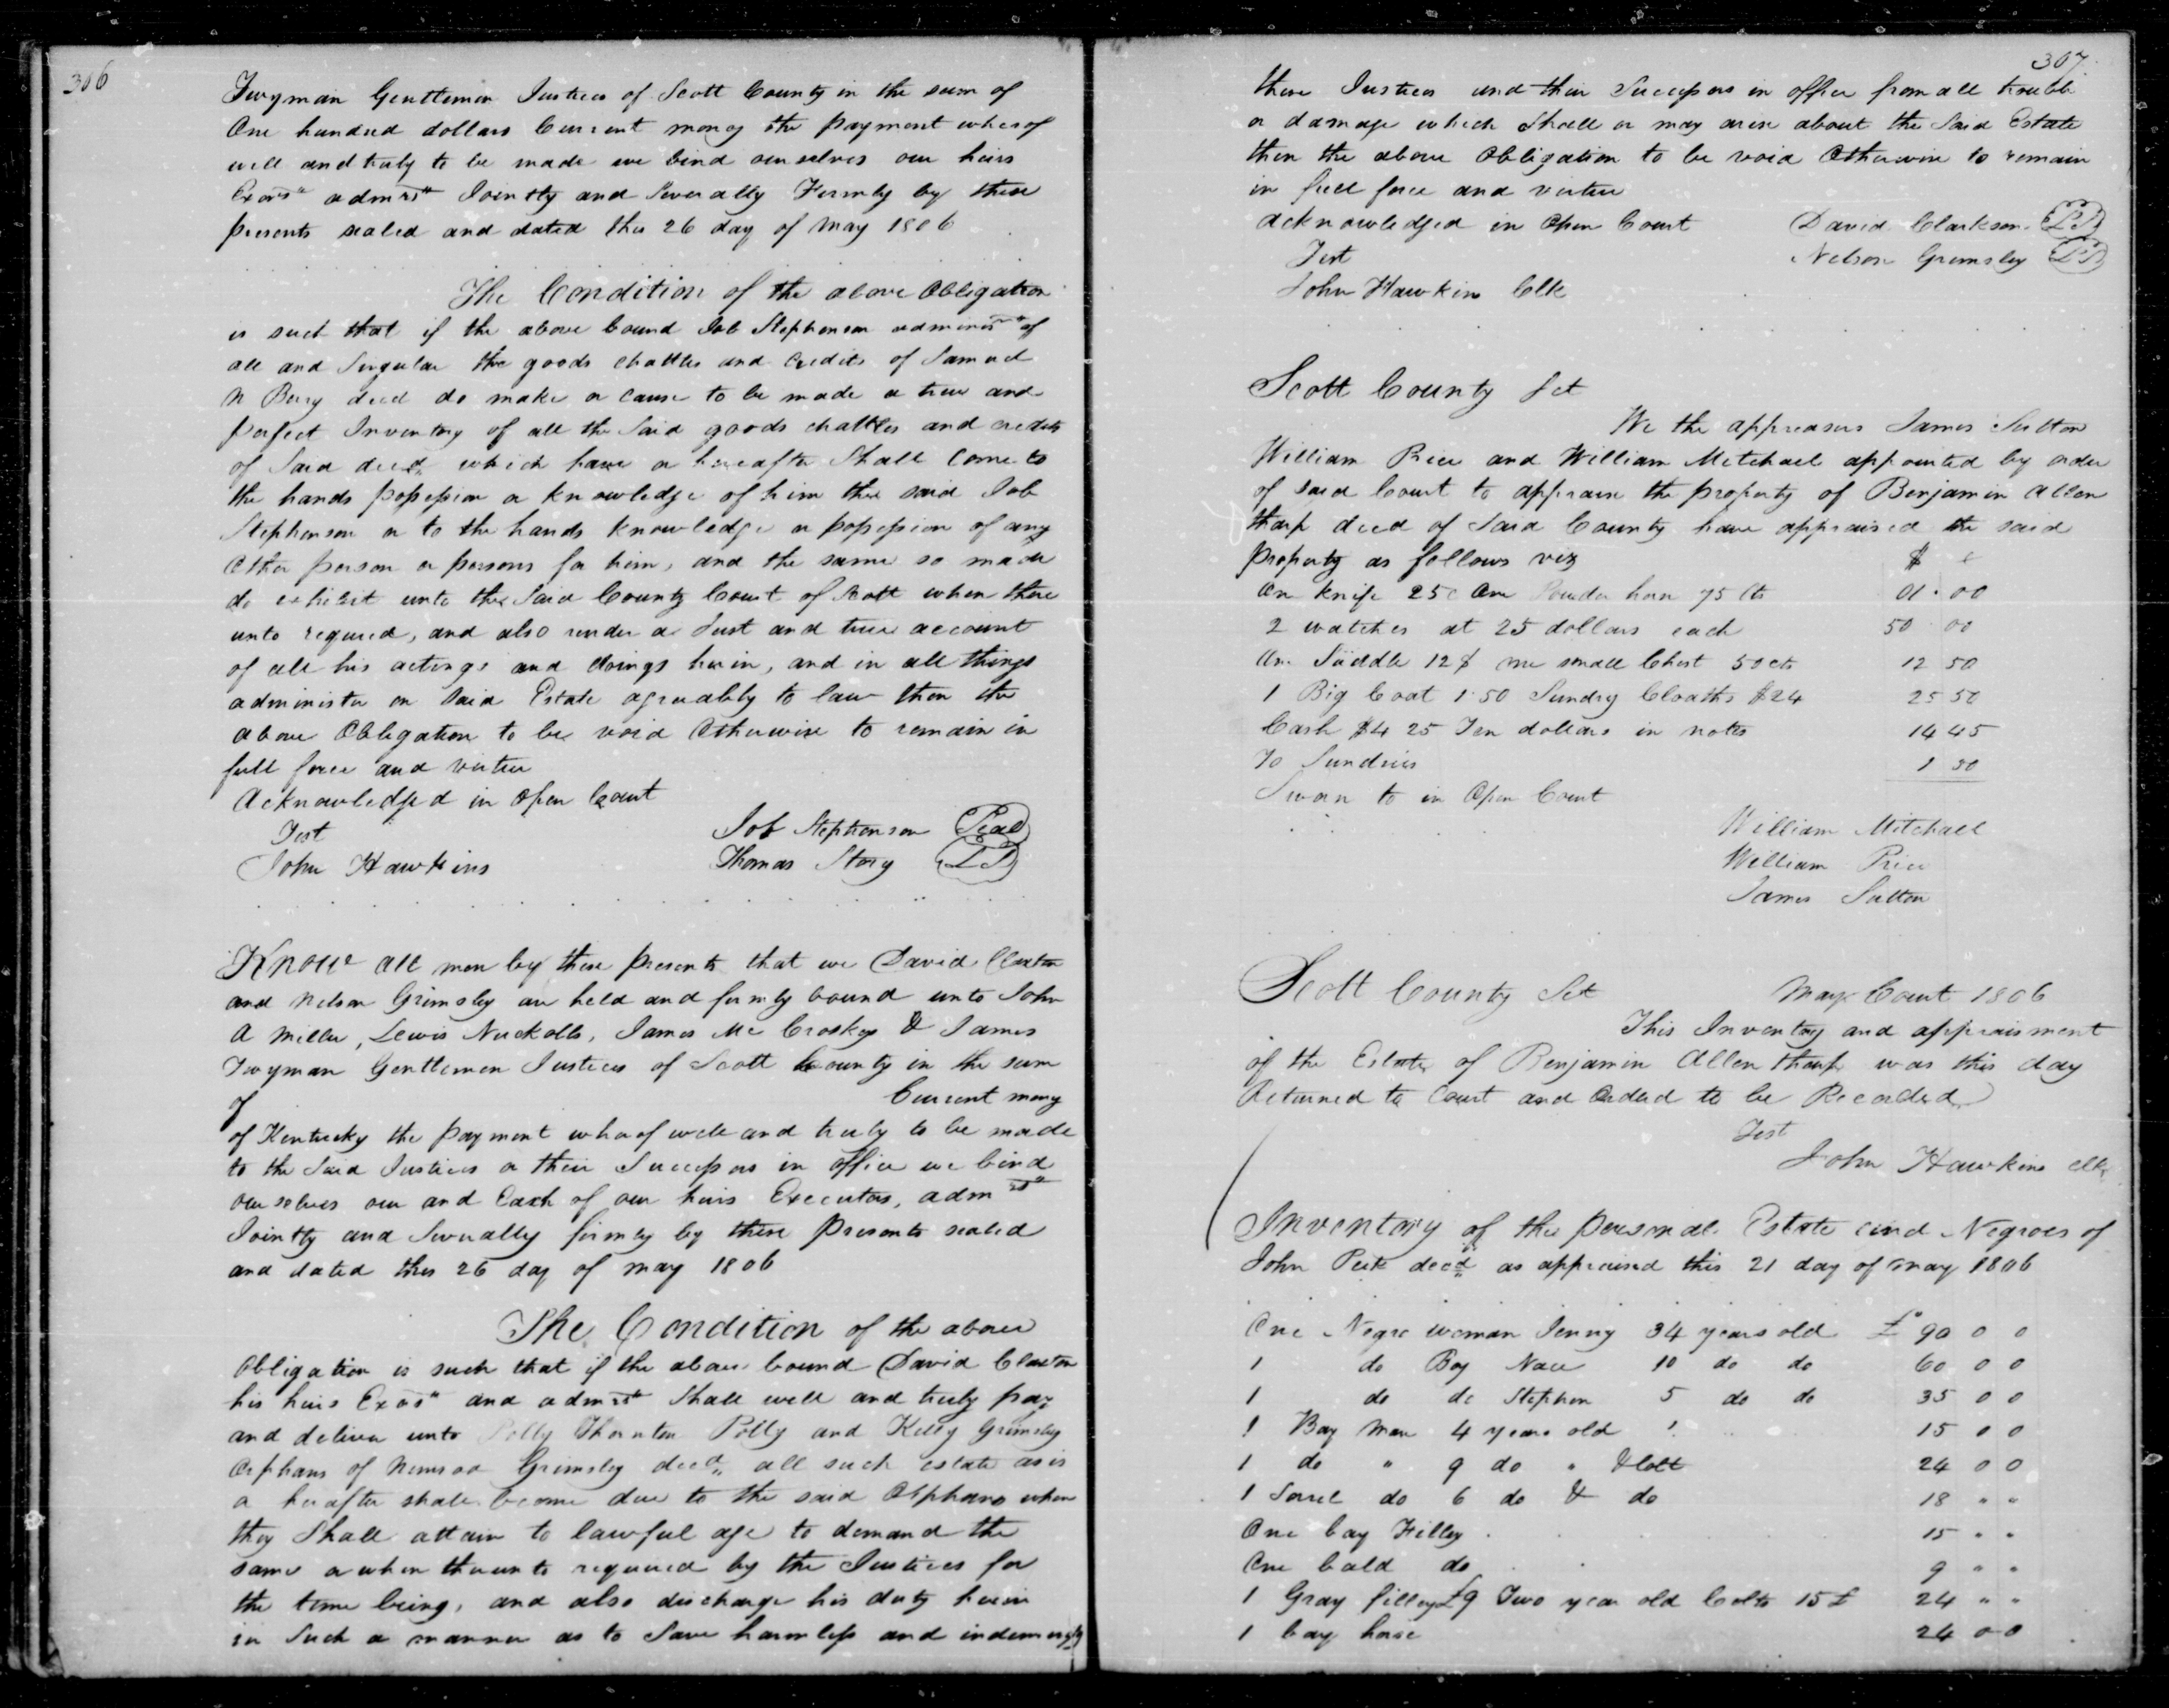 306
Twyman Gentlemen Justices of Scott County in the sum of
One hundred dollars Current money the payment whereof
well and truly to be made we bind ourselves our heirs
Exors admrs Jointly and Severally Firmly by these
presents sealed and dated this 26 day of may 1806
The Condition of the above Obligation
is such that if the above bound Job Stephenson adminisr of
all and Singular the goods chattles and Credits of Samuel
N Berry decd do make or cause to be made a true and
perfect Inventory of all the Said goods chattles and credits
of Said decd which have or hereafter Shall Come to
the hands possession or knowledge of him the said Job
Stephenson or to the hands knowledge or possession of any
Other person or persons for him, and the same so made
do exhibit unto the Said County Court of Scott when there
unto required, and also render a Just and true account
of all his actings and doings herein, and in all things
administer on Said Estate agreeably to law then the
above Obligation to be void Otherwise to remain in
full force and virtue
Acknowledged in Open Court
Test
Job Stephenson Seal
John Hawkins
Thomas Story LS
Know all men by these presents that we David Claxton
and Nelson Grimsley are held and firmly bound unto John
A Miller, Lewis Nuckolls, James Mc Croskey & James
Twyman Gentlemen Justices of Scott County in the sum
of Current money
of Kentucky the payment whereof well and truly to be made
to the Said Justices or their Successors in office we bind
ourselves our and Each of our heirs Executors, admrs
Jointly and Severally firmly by these presents sealed
and dated this 26 day of may 1806
The Condition of the above
Obligation is such that if the above bound David Claxton
his heirs Exors and admrs Shall well and truly pay
and deliver unto Polly Thornton Polly and Kitty Grimsley
Orphans of Nimrod Grimsley decd all such estate as is
or hereafter shall become due to the said Orphans when
they Shall attain to lawful age to demand the
same or when thereunto required by the Justices for
the time being, and also discharge his duty herein
in Such a manner as to Save harmless and indemnify
307
these Justices and their Successors in office from all trouble
or damage which Shall or may arise about the Said Estate
then the above Obligation to be void Otherwise to remain
in full force and virtue
acknowledged in Open Court David Clarkson LS
Test Nelson Grimsley LS
John Hawkins Clk
Scott County Sct
We the appreasers James Sutton
William Price and William Mitchael appointed by order
of said Court to appraise the property of Benjamin Allen
tharp decd of Said County have appraised the said
property as follows viz $ c
One knife 25c One Powder horn 75 Cts 01.00
2 watches at 25 dollars each 50 00
One Saddle 12$ one small Chest 50 cts 12 50
1 Big Coat 1.50 Sundry Cloaths $24 25 50
Cash $4 25 Ten dollars in notes 14 45
To Sundries 1 50
Sworn to in Open Court
William Mitchael
William Price
James Sutton
Scott County Sct May Court 1806
This Inventory and appraisment
of the Estate of Benjamin Allen tharp was this day
Returned to Court and Ordered to be Recorded
Test
John Hawkins clk
Inventory of the personal Estate and Negroes of
John Peek decd as appraised this 21 day of may 1806
One Negro woman Jenny 34 years old £ 90 0 0
1 do Boy Nace 10 do do 60 0 0
1 do do Stephen 5 do do 35 0 0
1 Bay Mare 4 years old 15 0 0
1 do " 9 do " & Colt 24 0 0
1 Sorrel do 6 do & do 18 " "
One bay Filley 15 " "
One bald do 9 " "
1 Gray filley £9 Two year old Colts 15£ 24 " "
1 bay horse 24 0 0